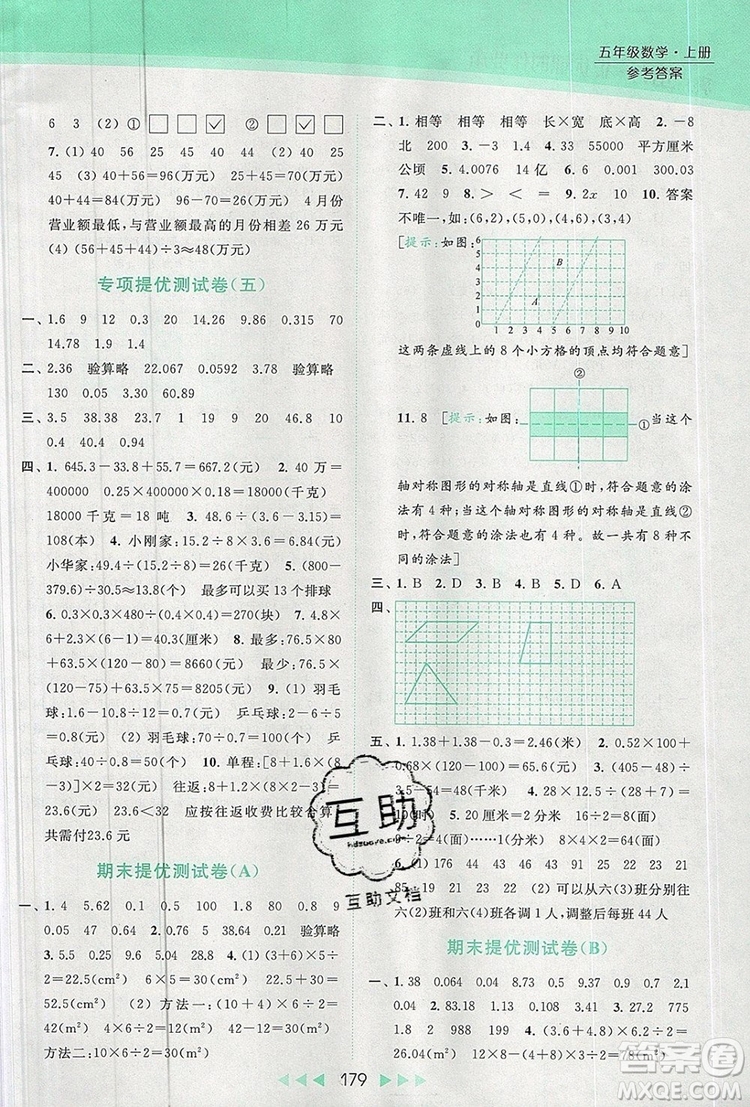 五年级数学·上册
参考答案
6 3 (2)①□□☑ ②□□☑
7.(1)40 56 (2)25 70 30 40
45 (3)40+56=96(万元) 25+45=70(万元)
40+44=84(万元) 96-70=26(万元) 4月份
营业额最低,与营业额最高的月份相差26万元
(4)(56+45+44)÷3≈48(万元)
专项提优测试卷(五)
一、1.6 9 12 0.3 20 14.26 9.86 0.315 70
14.78 1.9 1.4
二、2.36 验算略 22.067 0.0592 验算略
130 0.05 3.30 60.89
三、3.5 38.38 23.7 1 19 9 20 46.8 10
0.4 40.4 0.94
四、1. 645.3-33.8+55.7=667.2(元) 2. 40万=
400000 0.25×400000×0.18=18000(千克)
18000千克=18吨 3. 48.6÷(3.6-3.15)=
108(本) 4. 小刚家:44.5÷(2.9-0.4)=17.8(元)
小华家:49.4÷(2.9-0.3)=19(元) 5. (800-
379.6)÷30.8≈13(个) 最多可以买13个排球
6. 0.3×0.3×2×240÷(0.4×0.4)=270(块) 7. 4.8×
6+2.3×(6-1)=40.3(厘米) 8. 最多:76.5×80
+63.5×(120-80)=8660(元) 最少:76.5×
(120-75)+63.5×75=8205(元) 9. (1)羽毛
球:1.6-10.8÷12=0.7(元) 乒乓球:2-6÷5=
0.8(元) (2)羽毛球:42÷0.7=60(个) 乒乓
球:40÷0.8=50(个) 10. 单程:[8+1.6×(8-
3)]×2=32(元) 往返:8+1.6×(8×2-3)=
23.6(元) 23.6<32 应按往返收费比较合算
共需付23.6元
期末提优测试卷(A)
一、1. 4 5.62 0.1 0.5 100 1 0.80 0.8 9
0.52 2. 45.05 0.47 0.84 0.03 验算略
3. 5.5 2.4 1.25 78.8 1000 4. (1)(3+6)×5÷
2+5×12÷2=52.5(cm²) 22.5+30=
52.5(cm²) (2)方法一:(2+6)×3÷2=
12(m²) 6×10÷2=30(m²) 12+30=
42(m²) 4×6÷2=12(m²) 42-12=30(m²)
方法二:10×6÷2=30(m²)
二、1. 相等 相等 相等 长×宽 底×高 2. -8
北 200 3. -3 1.4 4. 33 55000 平方厘米
公顷 5. 4.0076 14亿 6. 6 0.001 303.03
7. 42 9 8. > < = 9. 2x 10 10. 答案
不唯一,如:(6,2),(5,0),(4,6),(3,4)
[提示:如图:
6
5
4
3
2
1
0
B
A
1 2 3 4 5 6 7 8 9 10
这两条虚线上的8个小方格的顶点均符合题意]
②
11. 8 [提示:如图: ①当这个
轴对称图形的对称轴是直线①时,符合题意的涂
法有4种;当这个轴对称图形的对称轴是直线②
时,符合题意的涂法有4种。故一共有8种不同
的涂法]
三、1. B 2. D 3. B 4. D 5. B 6. A
四、
五、1. 1.38+1.38-0.46=2.3(米) 2. 0.52×100+
0.68×(300-100)=188(元) 3. (405-48)÷
3.5-54=48(千米) 4. 28×30-28×24=
168(元) 5. 20÷3=6(面)……2(面) 6×2=
12(面) 8÷2=4 4×4=16(面) 8×2×4=64(面)
6. (1)46 44 90 42 48 90 23 21 21
85 19 21 22 21 22 21 22 43 (2)从
六(2)班和六(4)班各调1人,调整后每班44人
期末提优测试卷(B)
一、1. 38 0.064 0.04 23 0.9 0.07 2.1
0.04 2. 83.18 0.11 0.038 0.17 验算略
3. 1.82 2 988 199 4. (1)12.4×4.2÷2=
26.04(m²) 12×8-(12-6)×6÷2=78(m²)
互助
hdzuoye.com
互助文档
答案卷
MXQE.COM
179